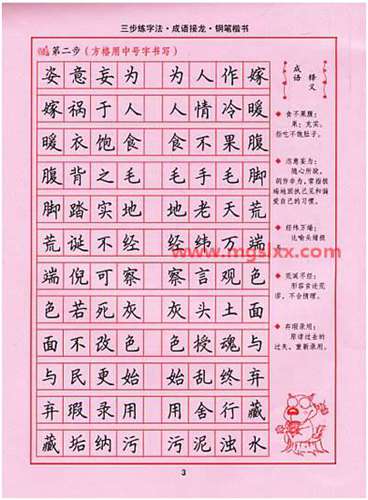 三步练字法·成语接龙·钢笔楷书
第二步（方格用中号字书写）
姿意妄为 为人作嫁
嫁祸于人 人情冷暖
暖衣饱食 食不果腹
腹背之毛 毛手毛脚
脚踏实地 地老天荒
荒诞不经 经纬万端
端倪可察 察言观色
色若死灰 灰头土面
面不改色 色授魂与
与民更始 始乱终弃
弃瑕录用 用舍行藏
藏垢纳污 污泥浊水
成语释义
食不果腹：
果：充实。
指吃不饱肚子。
恣意妄为：
随心所欲，
胡作非为，常指极
端地固执己见和偏
爱自己的习惯。
经纬万端：
比喻头绪极
荒诞不经：
形容言论荒
谬，不合情理。
弃瑕录用：
原谅过去的
过失，重新录用。
www.mgslxx.com
3